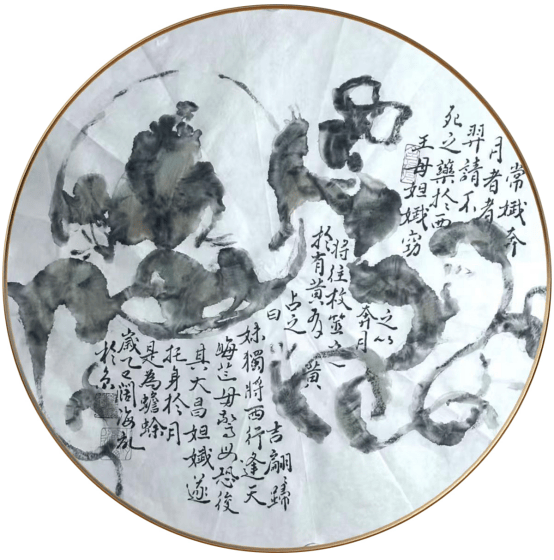 常娥奔
月者者
羿請不
死之藥於西
王母姮娥竊
之以
奔月
將往枚筮之
於有黃有
黃
占之
曰
吉翩歸
妹獨將西行逢天
晦芒毋驚毋恐後
其大昌姮娥遂
托身於月
是為蟾蜍
歲
於京